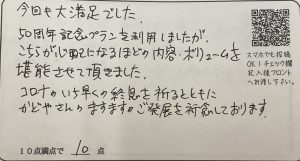 今回も大満足でした。
50周年記念プランを利用しましたが、
こちらが心配になるほどの内容・ボリュームを
堪能させて頂きました。
コロナのいち早くの終息を祈るとともに
かどやさんのますますのご発展を祈念しております。
スマホでも投稿
OK！チェック欄
記入後フロント
へお渡し下さい。
10点満点で 10 点